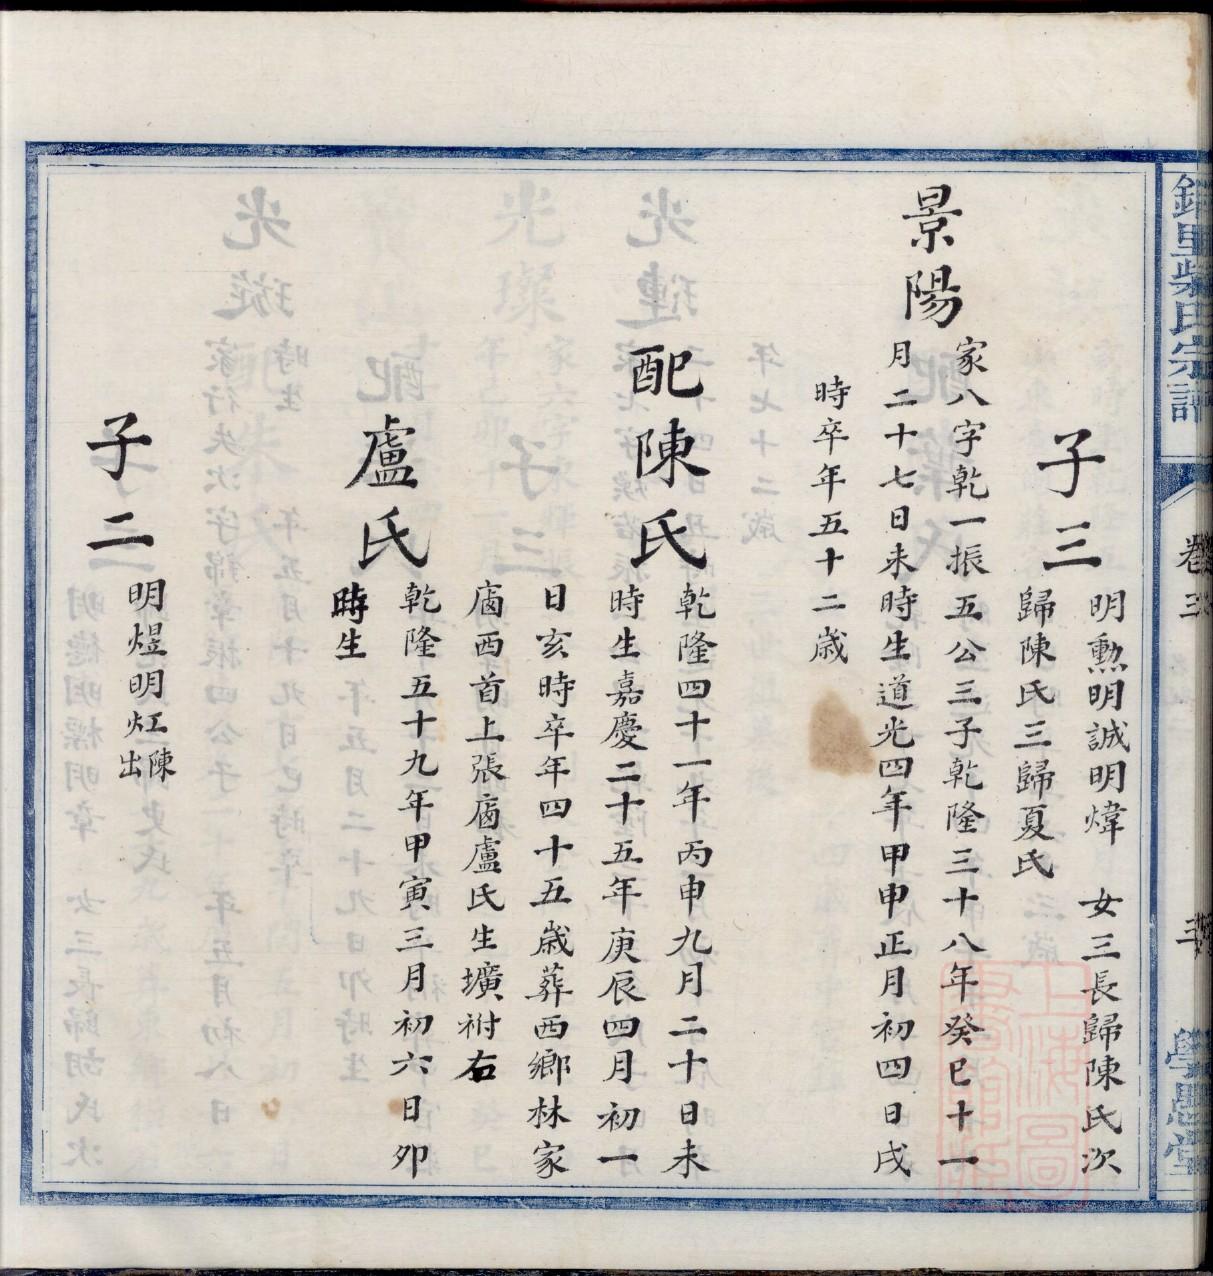 子三
明勲明誠明煒　女三長歸陳氏次
歸陳氏三歸夏氏
景陽
家八字乾一振五公三子乾隆三十八年癸巳十一
月二十七日未時生道光四年甲申正月初四日戌
時卒年五十二歳
配陳氏
乾隆四十一年丙申九月二十日未
時生嘉慶二十五年庚辰四月初一
日亥時卒年四十五歳葬西鄉林家
廟西首上張廟盧氏生壙祔右
盧氏
乾隆五十九年甲寅三月初六日卯
時生
子二
明煜明灴陳
出
里柴氏宗譜
卷三
學愚堂
上海圖